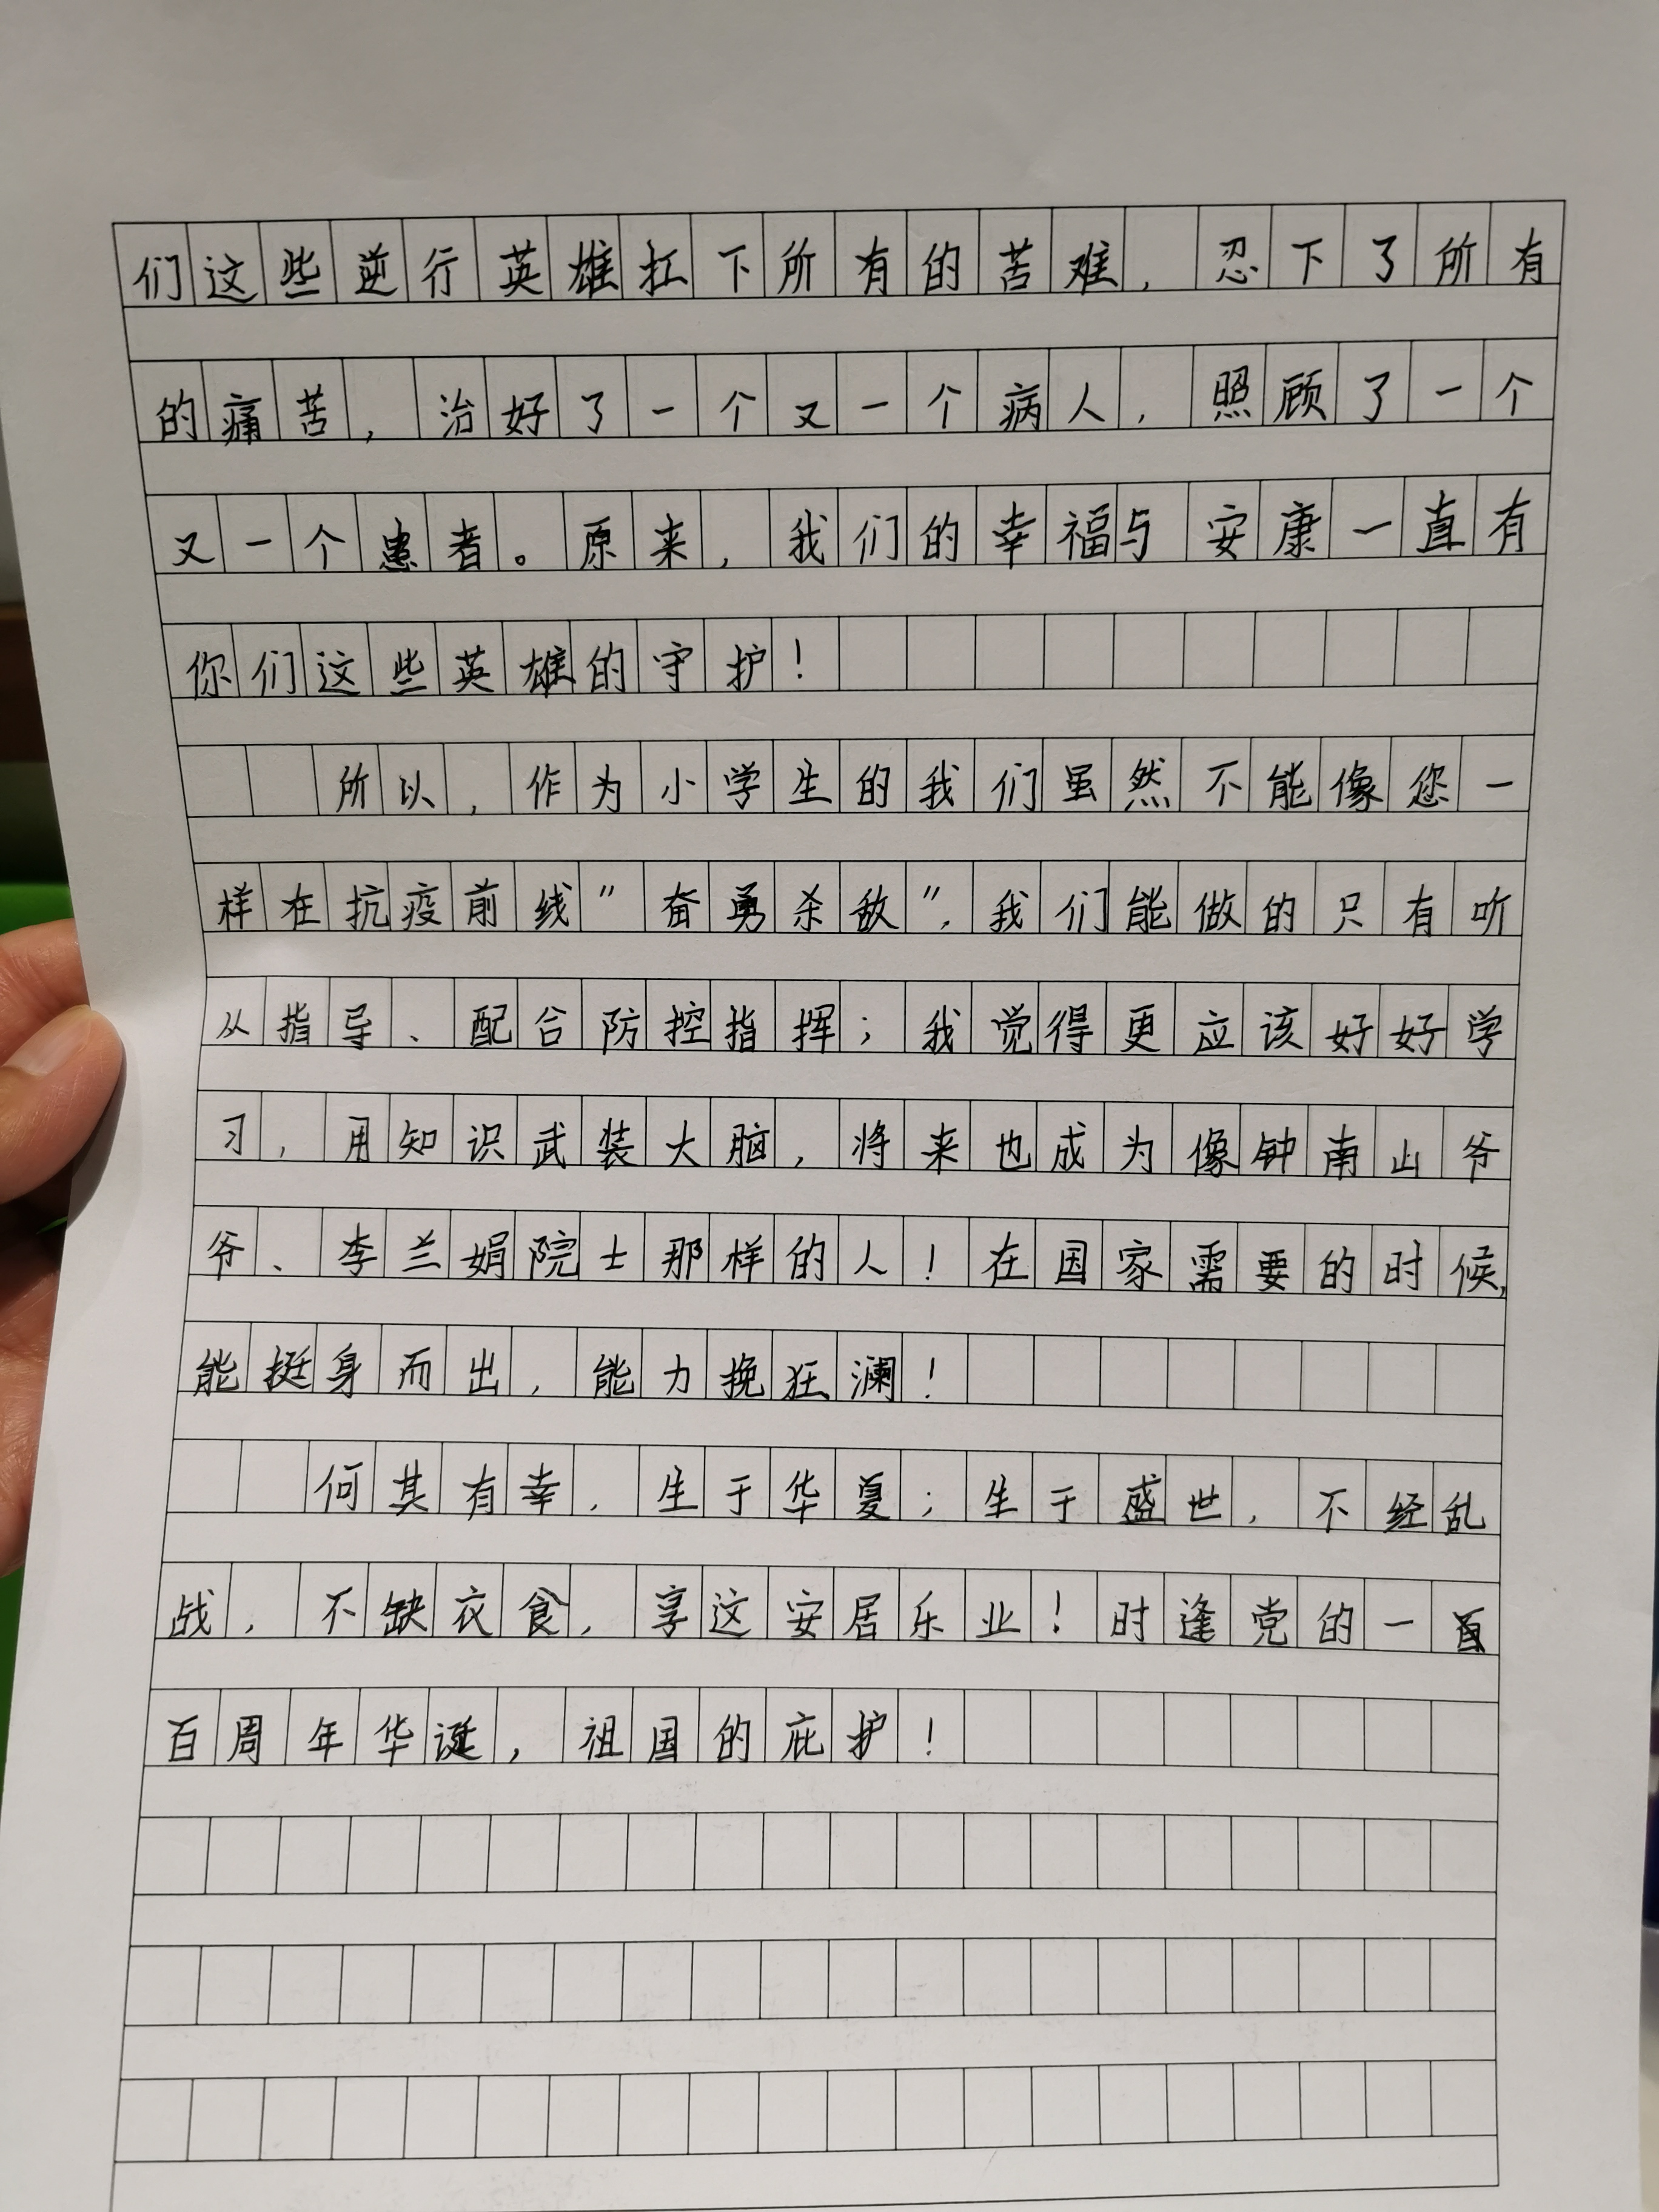 们这些逆行英雄扛下所有的苦难，忍下了所有
的痛苦，治好了一个又一个病人，照顾了一个
又一个患者。原来，我们的幸福与安康一直有
你们这些英雄的守护！
所以，作为小学生的我们虽然不能像您一
样在抗疫前线"奋勇杀敌"，我们能做的只有听
从指导、配合防控指挥；我觉得更应该好好学
习，用知识武装大脑，将来也成为像钟南山爷
爷、李兰娟院士那样的人！在国家需要的时候，
能挺身而出，能力挽狂澜！
何其有幸，生于华夏；生于盛世，不经乱
战，不缺衣食，享这安居乐业！时逢党的一
百周年华诞，祖国的庇护！